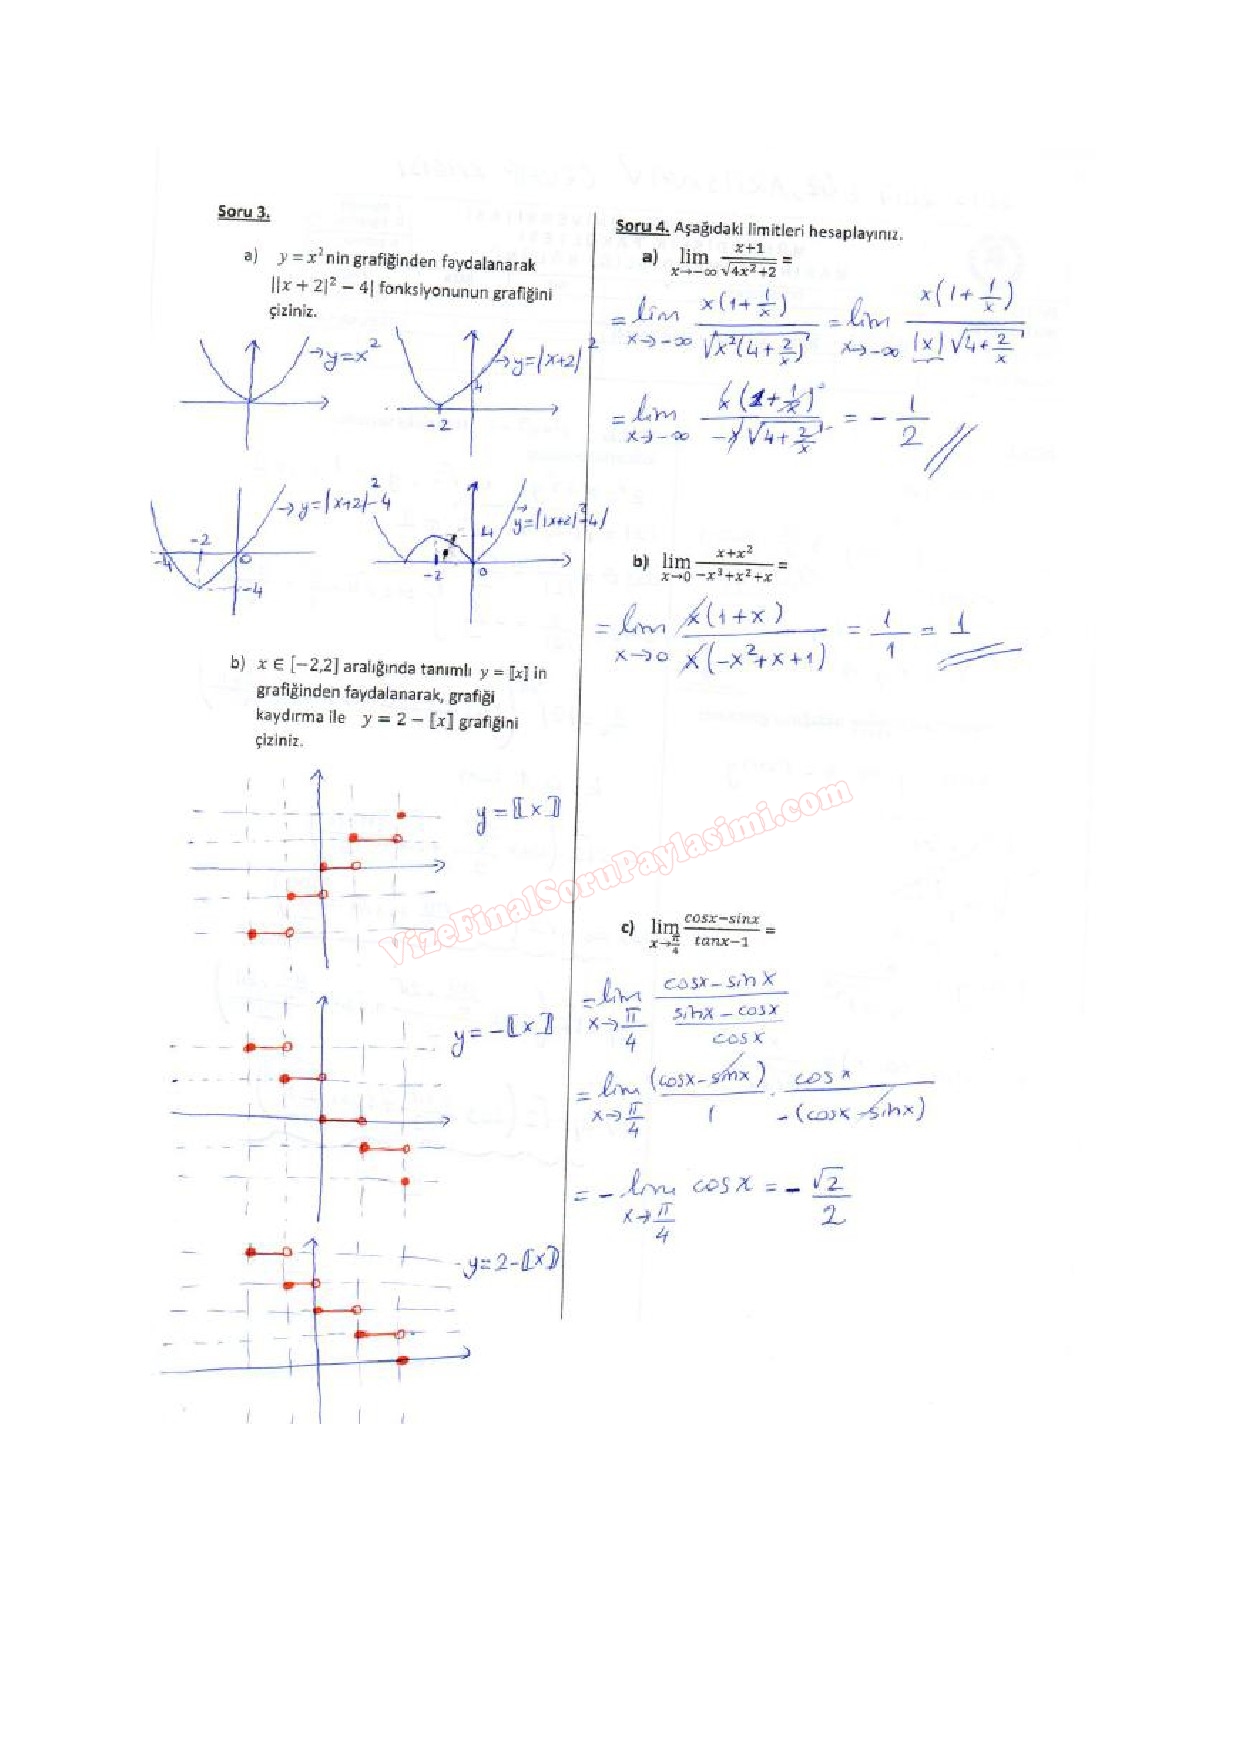 Soru 3.
a) y = x² nin grafiğinden faydalanarak
||x + 2|² − 4| fonksiyonunun grafiğini
çiziniz.
→ y=x²
→ y=|x+2|²
4
-2
→ y=|x+2|²-4
-2
-4
0
-4
y=||x+2|²-4|
4
-2
0
b) x ∈ [−2,2] aralığında tanımlı y = ⟦x⟧ in
grafiğinden faydalanarak, grafiği
kaydırma ile y = 2 − ⟦x⟧ grafiğini
çiziniz.
y=⟦x⟧
y=-⟦x⟧
y=2-⟦x⟧
Soru 4. Aşağıdaki limitleri hesaplayınız.
a) lim x→−∞ (x+1)/√(4x²+2) =
= lim x→-∞ x(1+1/x)/√(x²(4+2/x)) = lim x→-∞ x(1+1/x)/(|x|√(4+2/x))
= lim x→-∞ x(1+1/x)/(-x√(4+2/x)) = -1/2
b) lim x→0 (x+x²)/(−x³+x²+x) =
= lim x→0 x(1+x)/(x(-x²+x+1)) = 1/1 = 1
c) lim x→π/4 (cosx−sinx)/(tanx−1) =
= lim x→π/4 (cosx-sinx)/((sinx-cosx)/cosx)
= lim x→π/4 (cosx-sinx)/1 . cosx/(-(cosx-sinx))
= - lim x→π/4 cosx = -√2/2
VizeFinalSoruPaylasimi.com